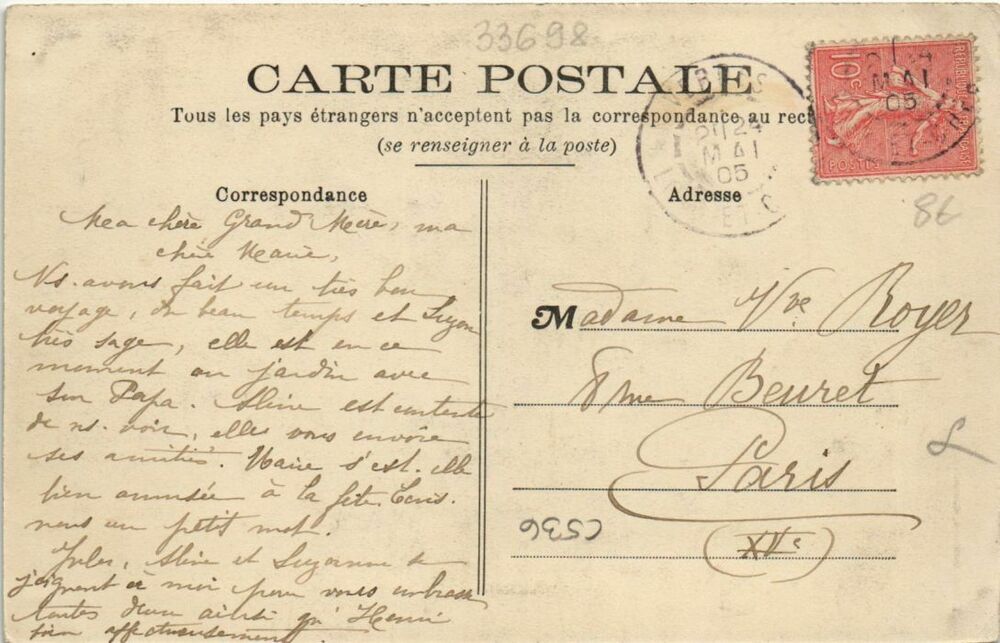 33698
CARTE POSTALE
Tous les pays étrangers n'acceptent pas la correspondance au rect
(se renseigner à la poste)
Correspondance
Ma chère Grand Mère, ma
chère Marie,
Ns. avons fait un très bon
voyage, du beau temps et Suzon
très sage, elle est en ce
moment au jardin avec
son Papa. Aline est contente
de ns. voir, elles vous envoie
ses amitiés. Marie s'est-elle
bien amusée à la fête Ecris-
nous un petit mot.
Jules, Aline et Suzanne se
joignent à moi pour vous embrasser
toutes deux ainsi qu'Henri
bien affectueusement
Adresse
Madame Vve Royer
8 rue Beuret
Paris
(XVe)
C536
86
24
MAI
05
REPUBLIQUE
10c
POSTES
24
MAI
05